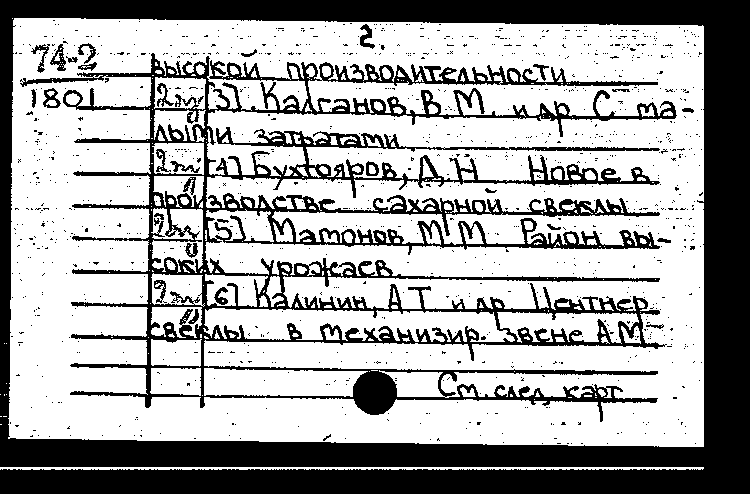 2.
74-2
1801
высокой производительности
[3]. Калганов, В.М. и др С ма-
лыми затратами
[4] Бухтояров, Д.Н Новое в
производстве сахарной свеклы
[5]. Мамонов, М.М Район вы-
соких урожаев.
[6] Калинин, А.Т и др Центнер
свёклы в механизир. звене А.М.
См. след. карт